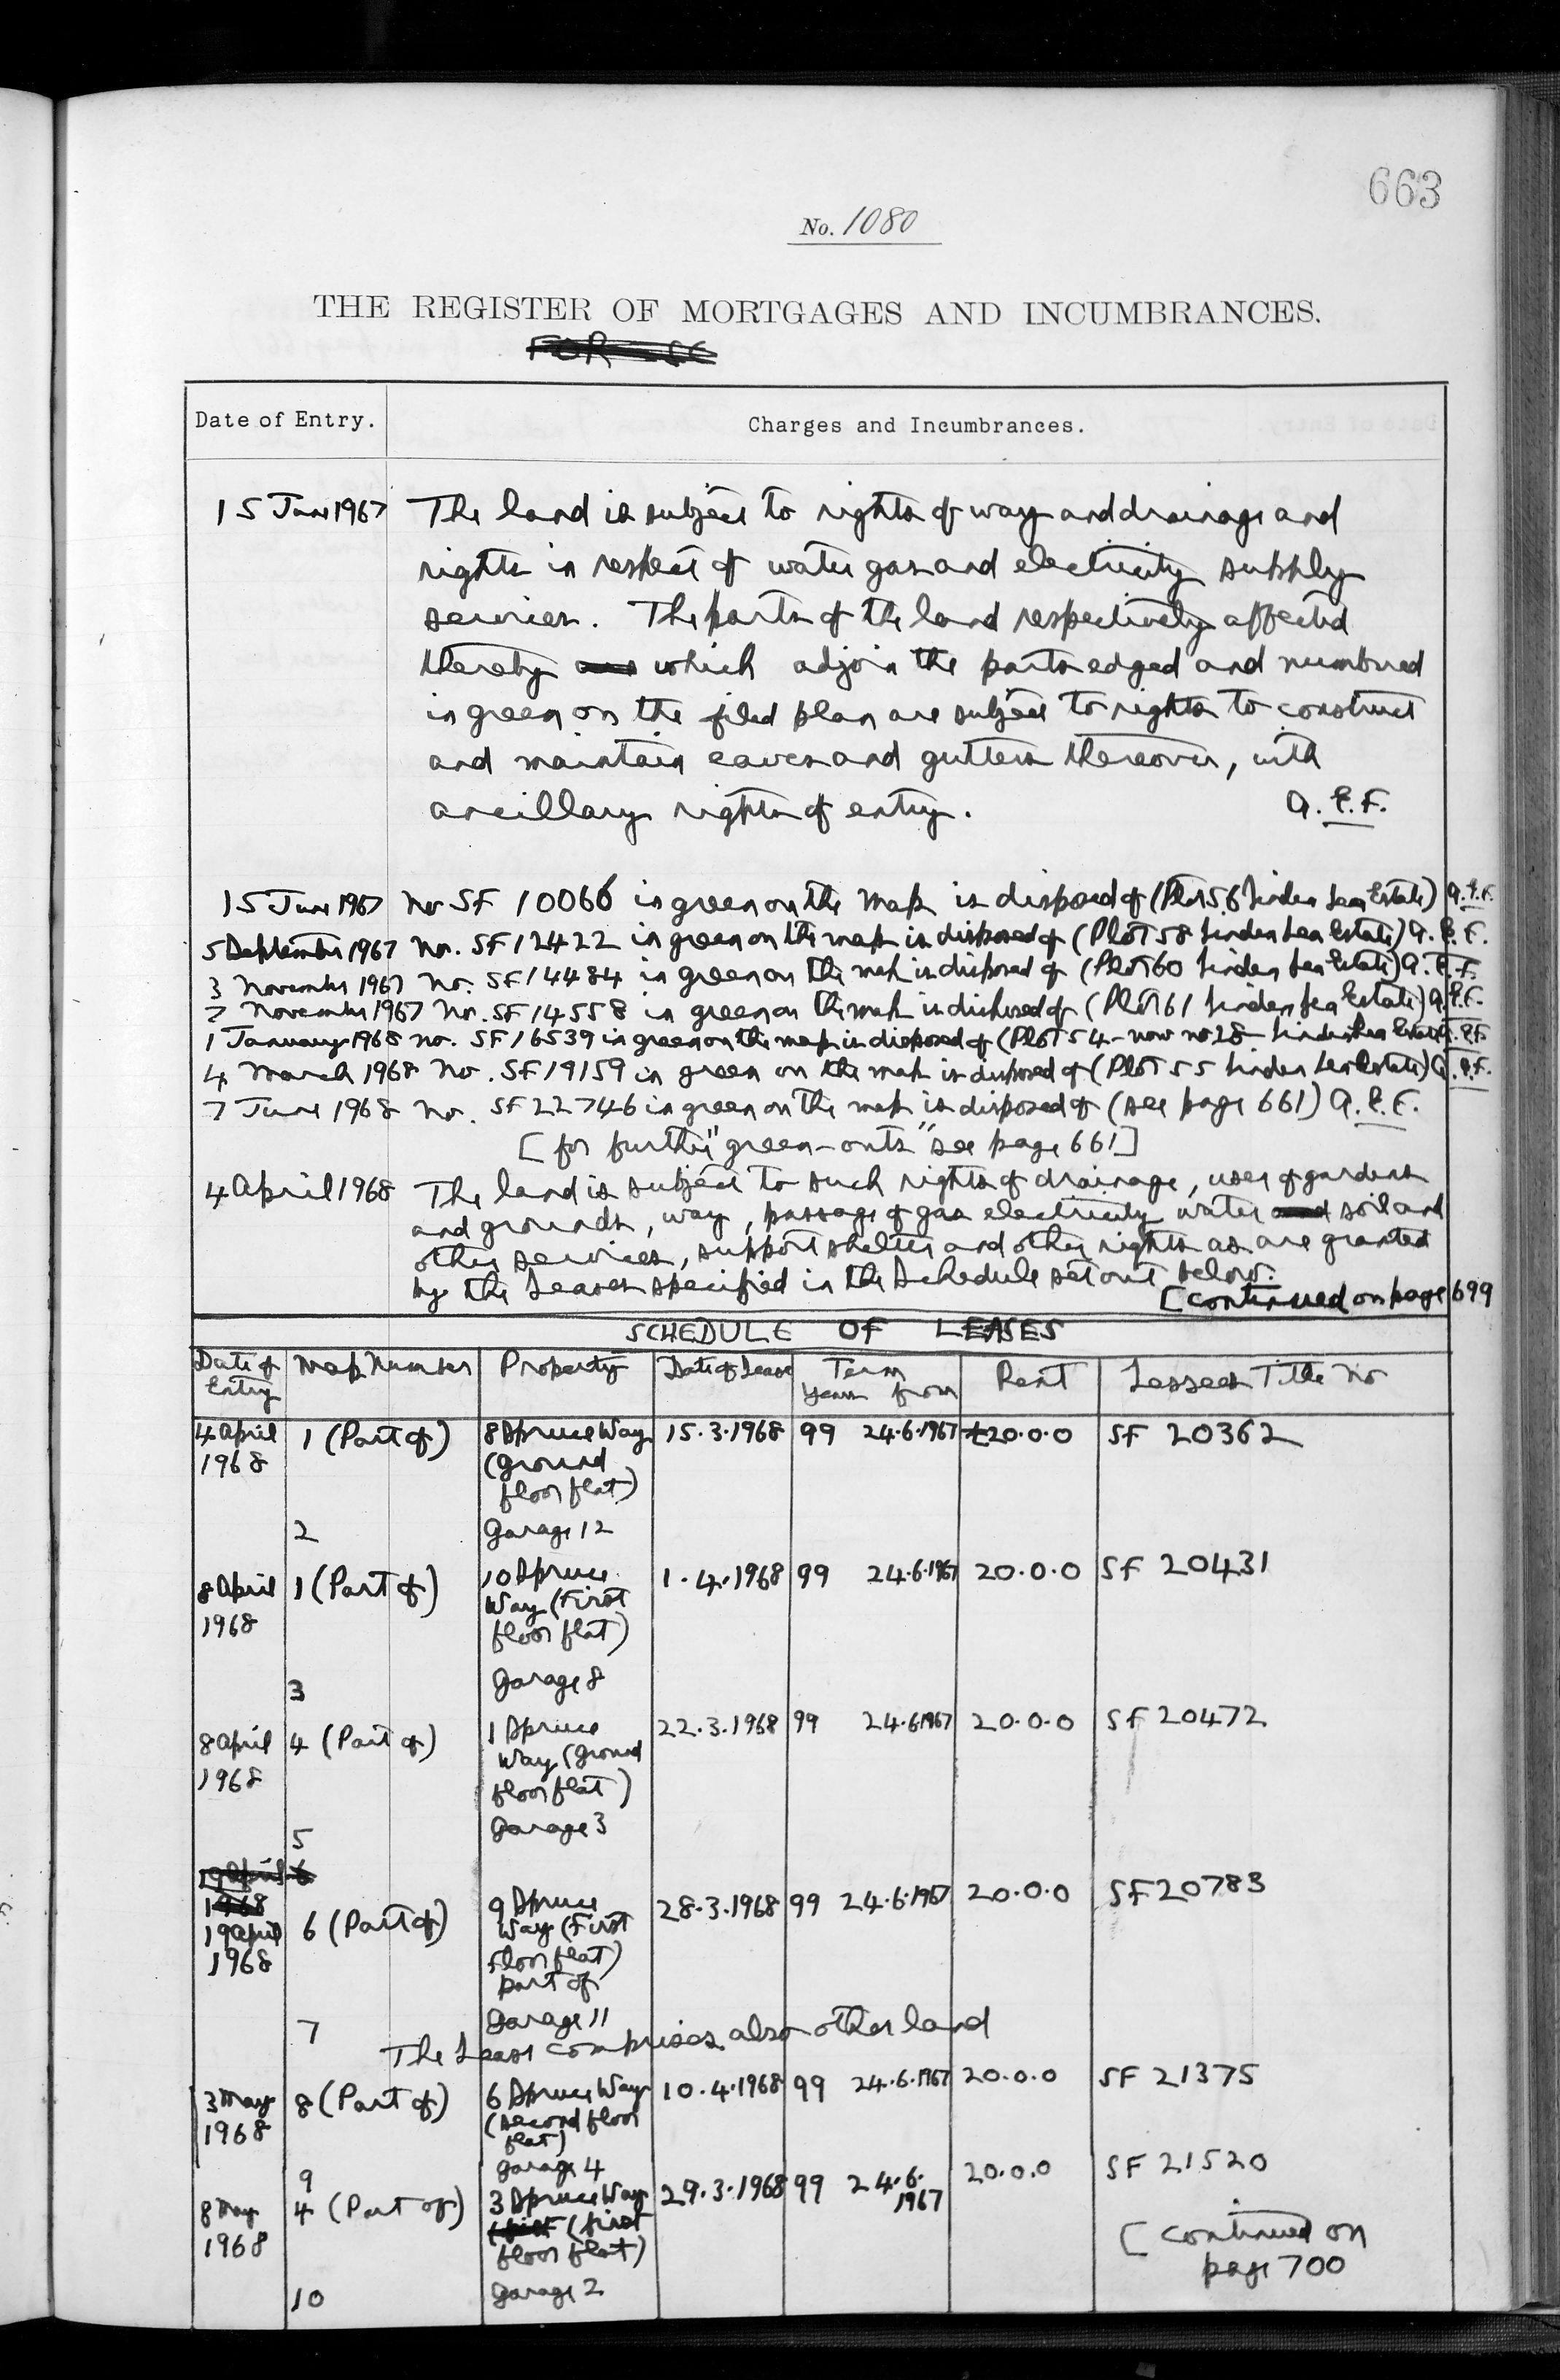 663
No. 1080
THE REGISTER OF MORTGAGES AND INCUMBRANCES.
Date of Entry. Charges and Incumbrances.
15 June 1967 The land is subject to rights of way and drainage and
rights in respect of water gas and electricity supply
services. The parts of the land respectively affected
thereby which adjoin the parts edged and numbered
in green on the filed plan are subject to rights to construct
and maintain eaves and gutters thereover, with
ancillary rights of entry. A.E.F.
15 June 1967 No SF 10066 in green on the map is disposed of (Plot 56 Linden Lea Estate) A.E.F.
5 September 1967 No. SF 12422 in green on the map is disposed of (Plot 58 Linden Lea Estate) A.E.F.
3 November 1967 No. SF 14484 in green on the map is disposed of (Plot 60 Linden Lea Estate) A.E.F.
7 November 1967 No. SF 14558 in green on the map is disposed of (Plot 61 Linden Lea Estate) A.E.F.
1 January 1968 No. SF 16539 in green on the map is disposed of (Plot 54 - now no 28 - Linden Lea Estate) A.E.F.
4 March 1968 No. SF 19159 in green on the map is disposed of (Plot 55 Linden Lea Estate) A.E.F.
7 June 1968 No. SF 22746 in green on the map is disposed of (see page 661) A.E.F.
[for further "green-outs" see page 661]
4 April 1968 The land is subject to such rights of drainage, user of gardens
and grounds, way, passage of gas electricity water soil and
other services, support shelter and other rights as are granted
by the Leases specified in the Schedule set out below.
[continued on page 699
SCHEDULE OF LEASES
Date of Entry Map Number Property Date of Lease Term Years from Rent Lessees Title No
4 April 1968 1 (Part of) 8 Spruce Way (ground floor flat) 15.3.1968 99 24.6.1967 £20.0.0 SF 20362
2 Garage 12
8 April 1968 1 (Part of) 10 Spruce Way (First floor flat) 1.4.1968 99 24.6.1967 20.0.0 SF 20431
3 Garage 8
8 April 1968 4 (Part of) 1 Spruce Way (Ground floor flat) 22.3.1968 99 24.6.1967 20.0.0 SF 20472
5 Garage 3
19 April 6
1968
19 April 1968 6 (Part of) 9 Spruce Way (First floor flat) part of 28.3.1968 99 24.6.1967 20.0.0 SF 20783
7 Garage 11
The Lease comprises also other land
3 May 1968 8 (Part of) 6 Spruce Way (second floor flat) 10.4.1968 99 24.6.1967 20.0.0 SF 21375
9 Garage 4
8 May 1968 4 (Part of) 3 Spruce Way (first floor flat) 29.3.1968 99 24.6.1967 20.0.0 SF 21520
10 Garage 2
[continued on
page 700